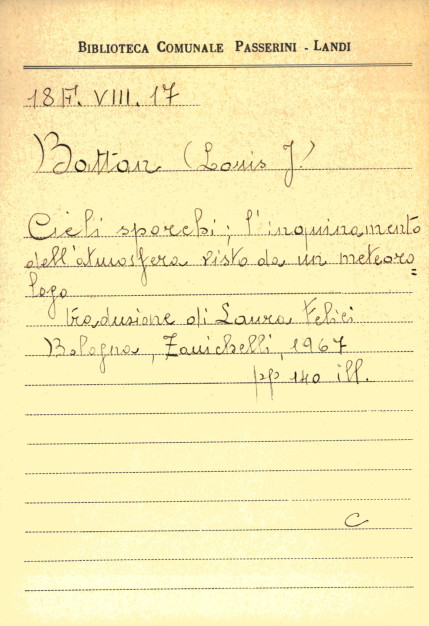 BIBLIOTECA COMUNALE PASSERINI - LANDI
18 F. VIII. 17
Battan (Louis J.)
Cieli sporchi; l'inquinamento
dell'atmosfera visto da un meteoro=
logo
traduzione di Laura Felici
Bologna, Zanichelli, 1967
pp 140 ill.
C